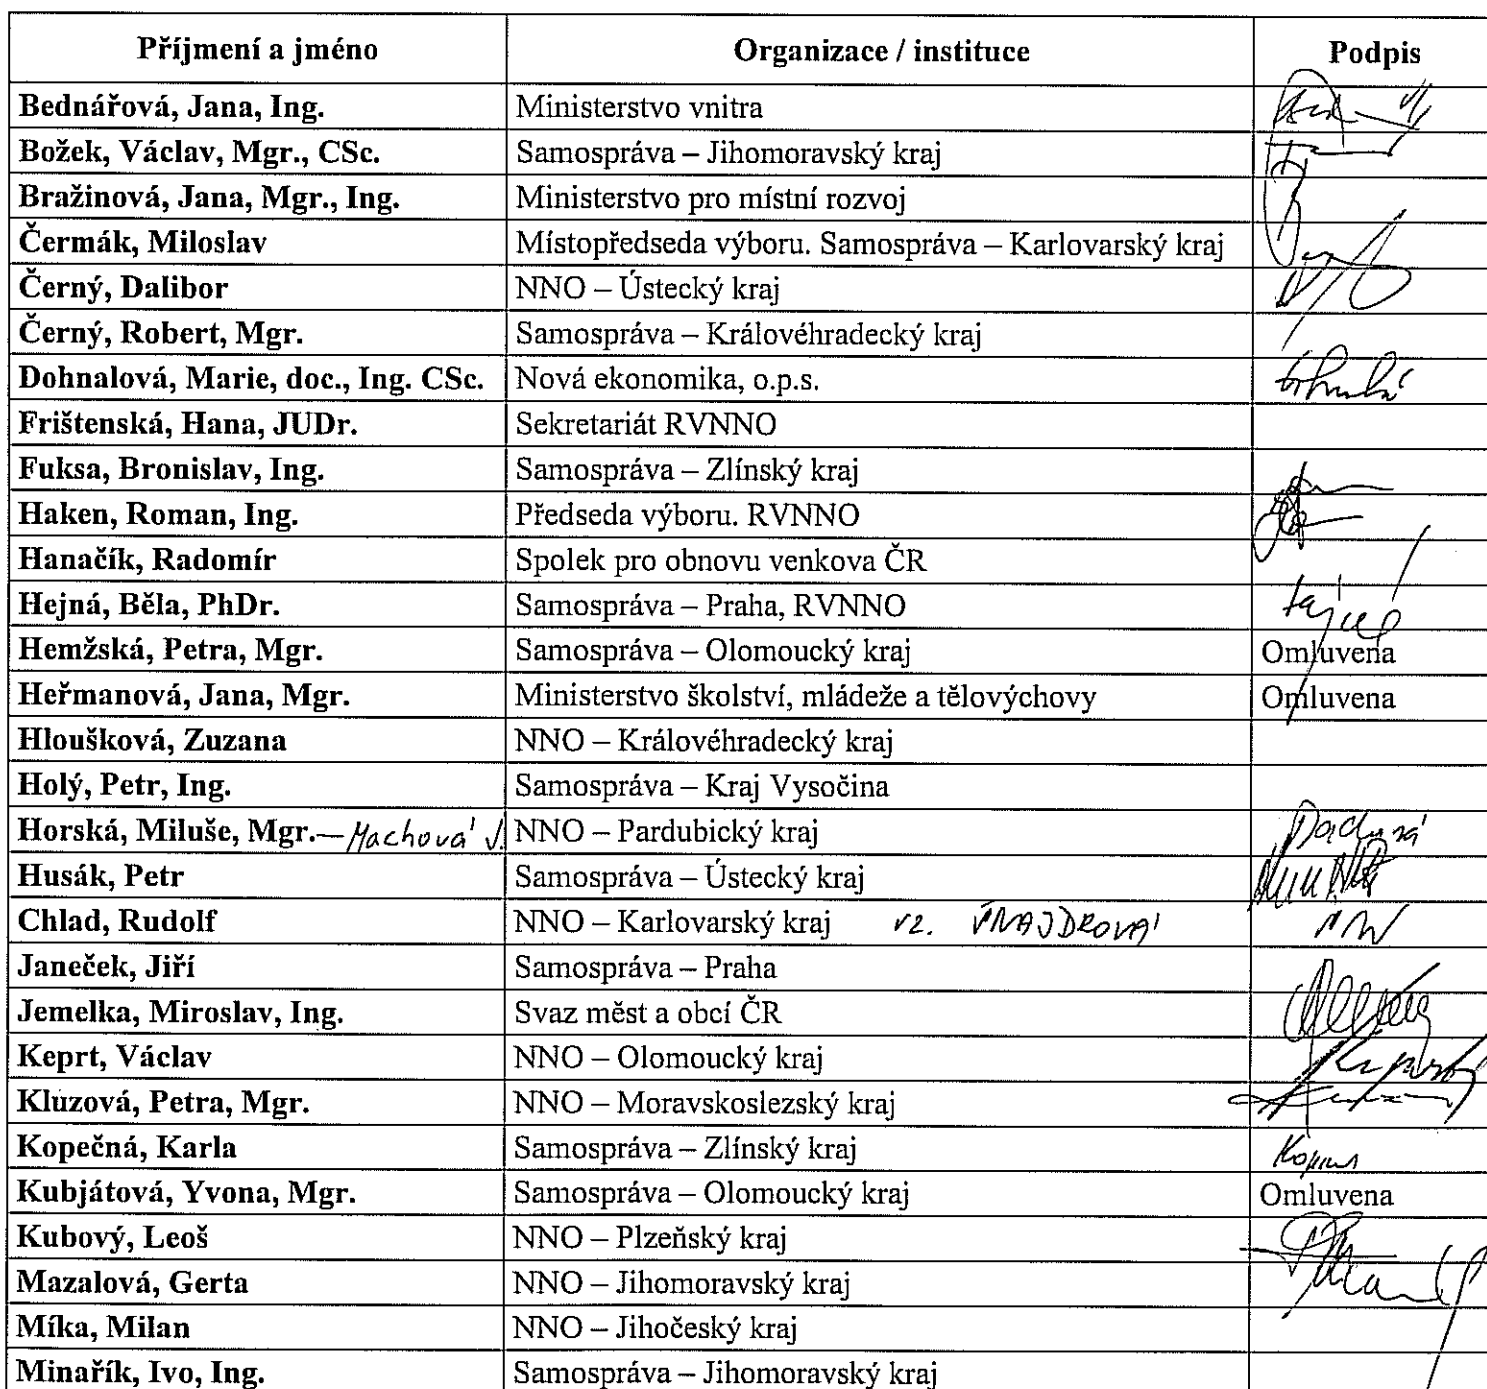 Příjmení a jméno Organizace / instituce Podpis
Bednářová, Jana, Ing. Ministerstvo vnitra
Božek, Václav, Mgr., CSc. Samospráva – Jihomoravský kraj
Bražinová, Jana, Mgr., Ing. Ministerstvo pro místní rozvoj
Čermák, Miloslav Místopředseda výboru. Samospráva – Karlovarský kraj
Černý, Dalibor NNO – Ústecký kraj
Černý, Robert, Mgr. Samospráva – Královéhradecký kraj
Dohnalová, Marie, doc., Ing. CSc. Nová ekonomika, o.p.s.
Frištenská, Hana, JUDr. Sekretariát RVNNO
Fuksa, Bronislav, Ing. Samospráva – Zlínský kraj
Haken, Roman, Ing. Předseda výboru. RVNNO
Hanačík, Radomír Spolek pro obnovu venkova ČR
Hejná, Běla, PhDr. Samospráva – Praha, RVNNO
Hemžská, Petra, Mgr. Samospráva – Olomoucký kraj Omluvena
Heřmanová, Jana, Mgr. Ministerstvo školství, mládeže a tělovýchovy Omluvena
Hloušková, Zuzana NNO – Královéhradecký kraj
Holý, Petr, Ing. Samospráva – Kraj Vysočina
Horská, Miluše, Mgr. – Machová J. NNO – Pardubický kraj
Husák, Petr Samospráva – Ústecký kraj
Chlad, Rudolf NNO – Karlovarský kraj vz.
Janeček, Jiří Samospráva – Praha
Jemelka, Miroslav, Ing. Svaz měst a obcí ČR
Keprt, Václav NNO – Olomoucký kraj
Kluzová, Petra, Mgr. NNO – Moravskoslezský kraj
Kopečná, Karla Samospráva – Zlínský kraj
Kubjátová, Yvona, Mgr. Samospráva – Olomoucký kraj Omluvena
Kubový, Leoš NNO – Plzeňský kraj
Mazalová, Gerta NNO – Jihomoravský kraj
Míka, Milan NNO – Jihočeský kraj
Minařík, Ivo, Ing. Samospráva – Jihomoravský kraj